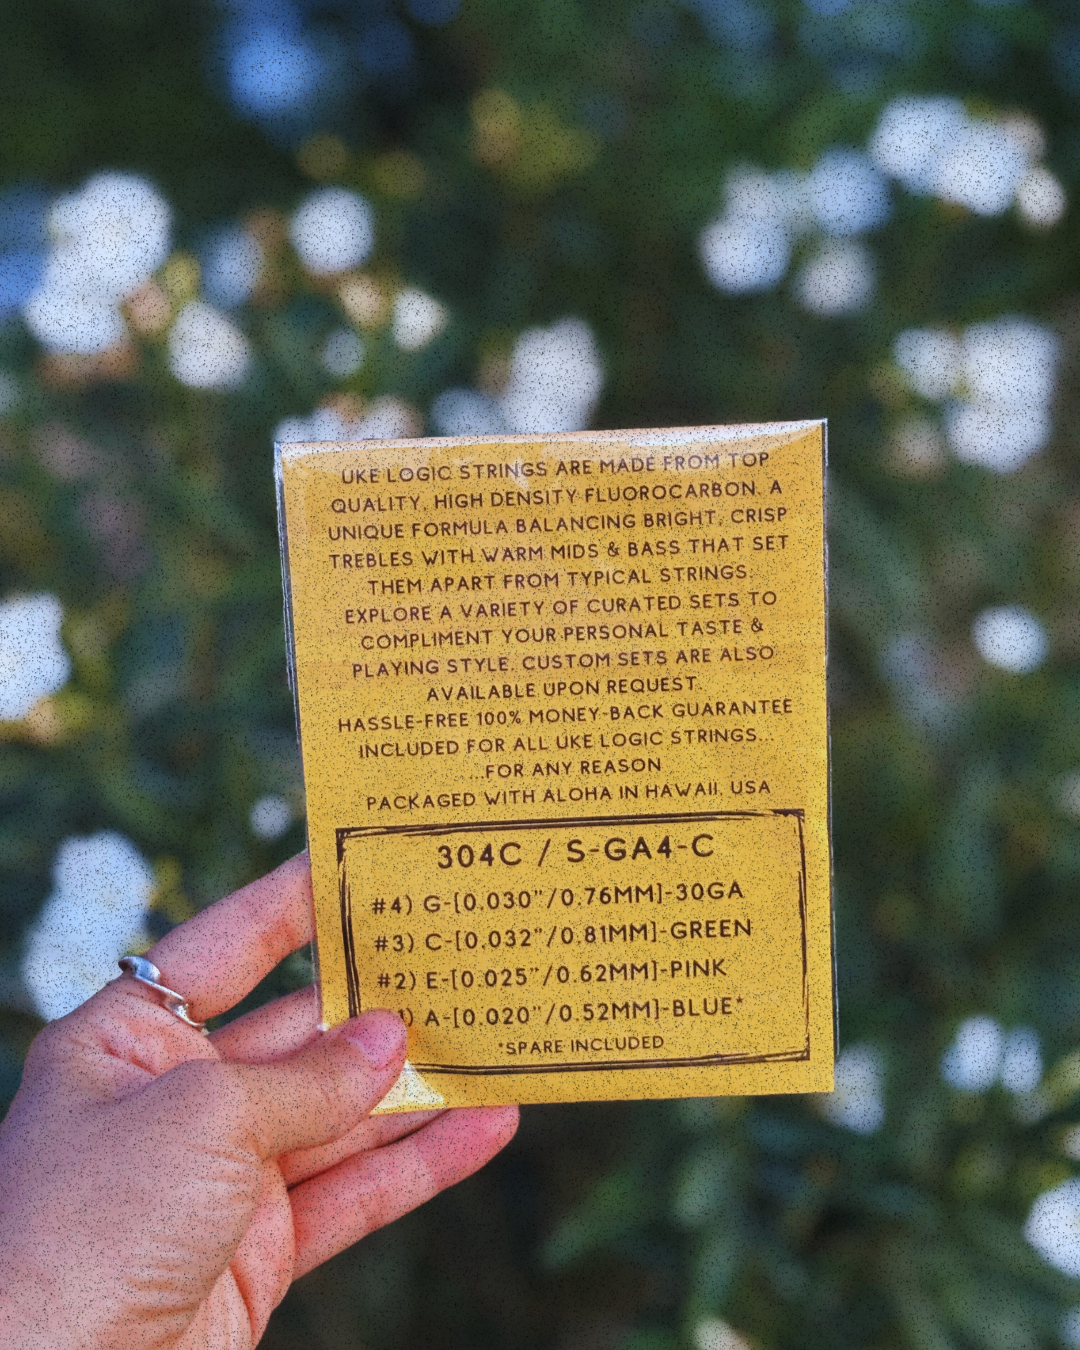 UKE LOGIC STRINGS ARE MADE FROM TOP
QUALITY, HIGH DENSITY FLUOROCARBON. A
UNIQUE FORMULA BALANCING BRIGHT, CRISP
TREBLES WITH WARM MIDS & BASS THAT SET
THEM APART FROM TYPICAL STRINGS.
EXPLORE A VARIETY OF CURATED SETS TO
COMPLIMENT YOUR PERSONAL TASTE &
PLAYING STYLE. CUSTOM SETS ARE ALSO
AVAILABLE UPON REQUEST.
HASSLE-FREE 100% MONEY-BACK GUARANTEE
INCLUDED FOR ALL UKE LOGIC STRINGS...
...FOR ANY REASON
PACKAGED WITH ALOHA IN HAWAII, USA
304C / S-GA4-C
#4) G-[0.030"/0.76MM]-30GA
#3) C-[0.032"/0.81MM]-GREEN
#2) E-[0.025"/0.62MM]-PINK
1) A-[0.020"/0.52MM]-BLUE*
*SPARE INCLUDED